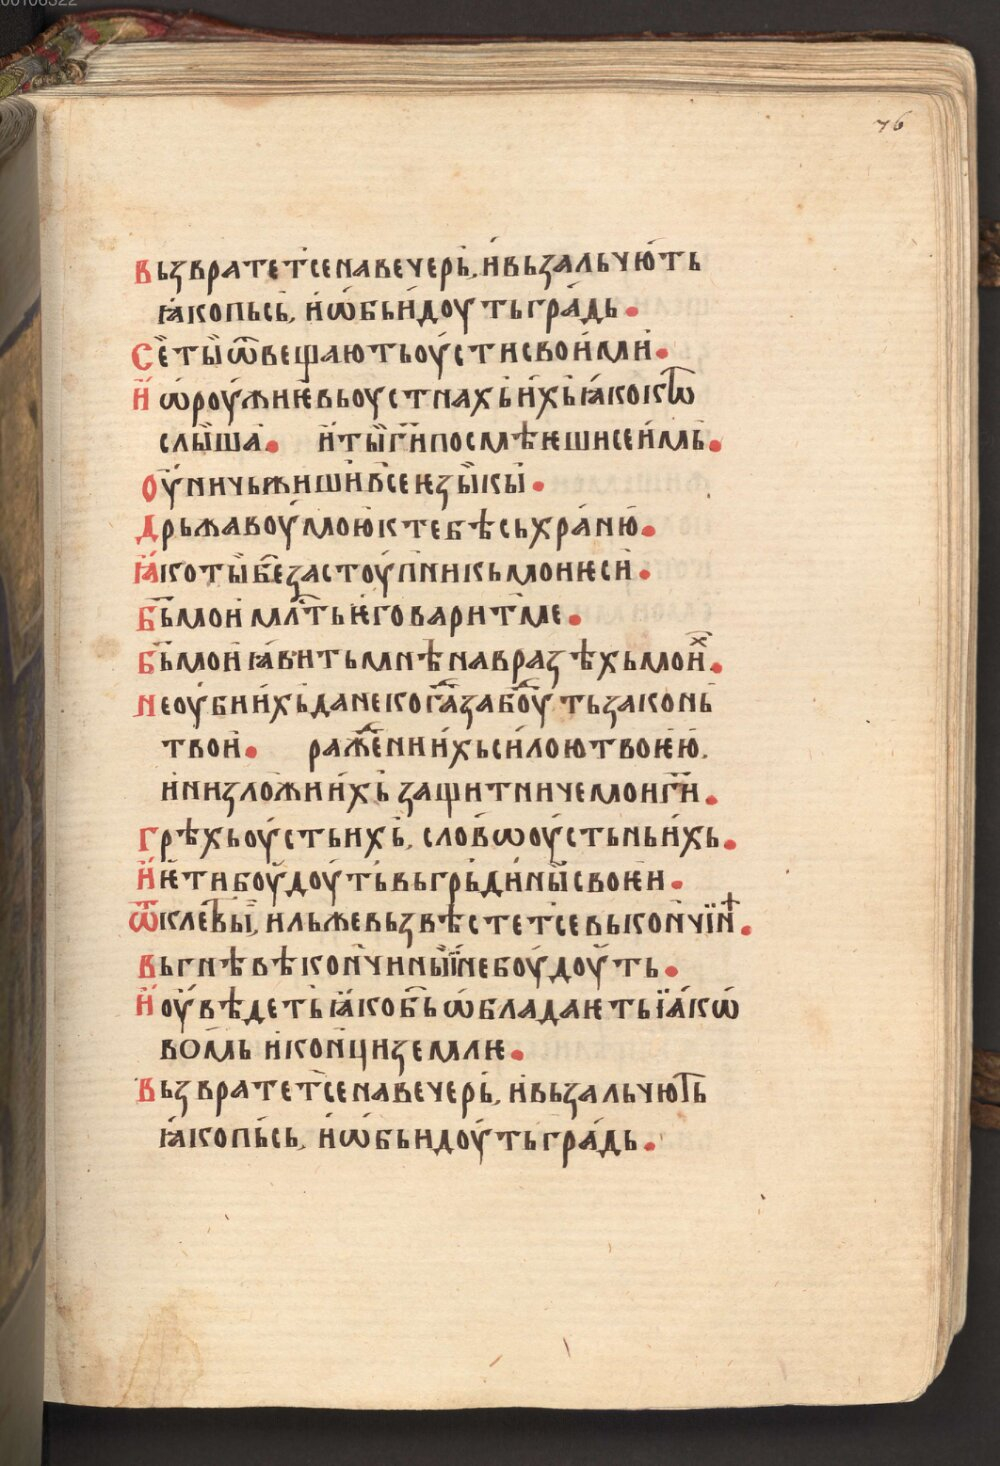 00108322
76
Вьзвратет҇се навечерь, и҆вьзальчю́ть
ꙗ҆копьсь, и҆ѡ҆бьи҆доуть гра́дь.
Се҆ ты̀ ѿвещають оу҆сти свои҆ми.
И҆ ѡ҆роу́жиѥ вьоустнахь и҆хь ꙗ҆ко кт̾ѡ
слы́ша. и҆ты̀ г҃и посмѣѥшисе и҆мь.
Оу҆ничьжиши вⷭ҇е ѥзы́кы.
Дрьжавоу́ мою̀ к тебѣ сьхра́ню.
Ꙗ҆ко ты̀ б҃е заступникь мои ѥси.
Б҃ь мои мл҇ть ѥ҆говарит҇ ме.
Б҃ь мои ꙗ҆вить мнѣ навразѣхь моиⷯ.
Не оу҆бии҆хь да не когⷣа забоуⷣть законь
твои. ражⷣени ихь силою твоѥю,
и҆низложи и҆хь защитниче мои г҃и.
Грѣхь оу҆сть ихь, слов̾ѡ оу҆стьнь и҆хь.
И҆ ѥ҆ти боу́доуть вьгрьди́ны своѥи.
Ѿ клетⷡ҇ы, и льже вьзвѣстет҇се вь кон̾чїнⷯ.
Вь гнѣвѣ кон̾чины̀ и҆ небоу́доуть.
И҆ оу҆вѣдеть ꙗ҆ко б҃ь ѡ҆бладаѥть їа҆кѡ́
вомь и҆кон̾ци землѥ.
Вьзвратет҇се навечерь, и҆вьзальчюⷮь
ꙗ҆копьсь, и҆ѡ҆бьидоу́ть гра́дь.